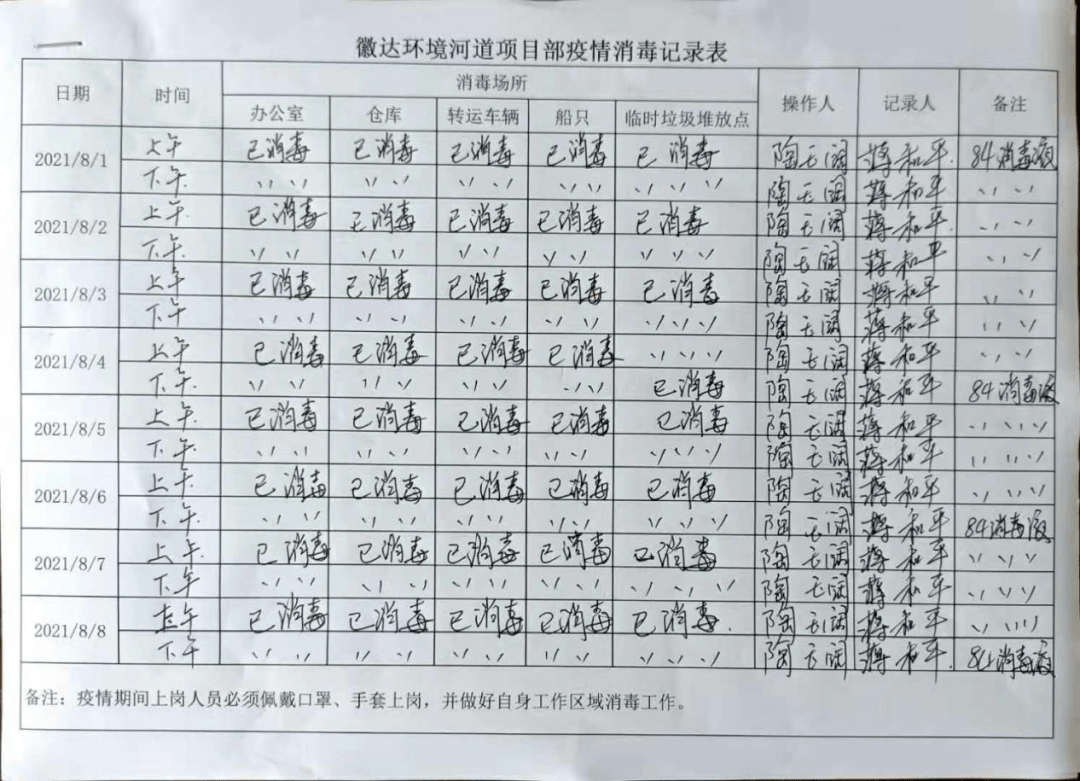 徽达环境河道项目部疫情消毒记录表
日期 时间 消毒场所 操作人 记录人 备注
办公室 仓库 转运车辆 船只 临时垃圾堆放点
2021/8/1 上午 已消毒 已消毒 已消毒 已消毒 已消毒 陶 阔 蒋和平 84消毒液
下午 〃 〃 〃 〃 〃 陶 阔 蒋和平 〃
2021/8/2 上午 已消毒 已消毒 已消毒 已消毒 已消毒 陶 阔 蒋和平 〃
下午 〃 〃 〃 〃 〃 陶 阔 蒋和平 〃
2021/8/3 上午 已消毒 已消毒 已消毒 已消毒 已消毒 陶 阔 蒋和平 〃
下午 〃 〃 〃 〃 〃 陶 阔 蒋和平 〃
2021/8/4 上午 已消毒 已消毒 已消毒 已消毒 〃 陶 阔 蒋和平 〃
下午 〃 〃 〃 〃 已消毒 陶 阔 蒋和平 84消毒液
2021/8/5 上午 已消毒 已消毒 已消毒 已消毒 已消毒 陶 阔 蒋和平 〃
下午 〃 〃 〃 〃 〃 陶 阔 蒋和平 〃
2021/8/6 上午 已消毒 已消毒 已消毒 已消毒 已消毒 陶 阔 蒋和平 〃
下午 〃 〃 〃 〃 〃 陶 阔 蒋和平 84消毒液
2021/8/7 上午 已消毒 已消毒 已消毒 已消毒 已消毒 陶 阔 蒋和平 〃
下午 〃 〃 〃 〃 〃 陶 阔 蒋和平 〃
2021/8/8 上午 已消毒 已消毒 已消毒 已消毒 已消毒 陶 阔 蒋和平 〃
下午 〃 〃 〃 〃 〃 陶 阔 蒋和平 84消毒液
备注：疫情期间上岗人员必须佩戴口罩、手套上岗，并做好自身工作区域消毒工作。